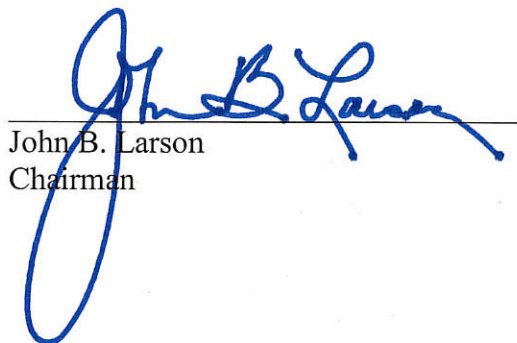 John B Larson
John B. Larson
Chairman